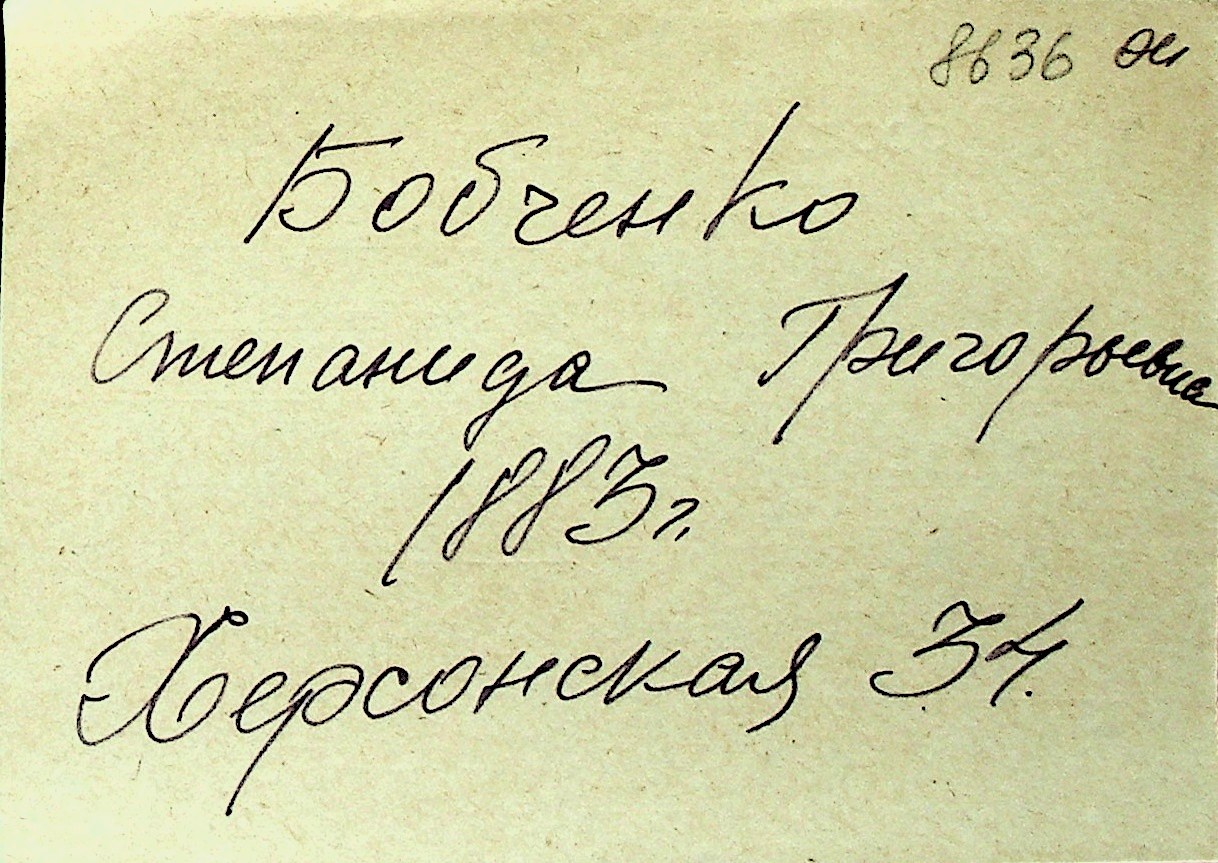 8636 ж
Бобченко
Степанида Григорьевна
1883 г.
Херсонская 34.